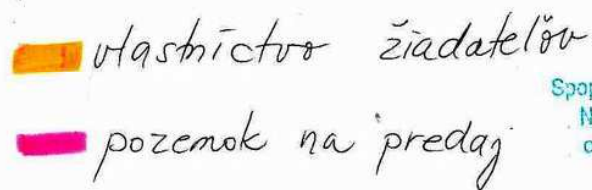 vlastníctvo žiadateľov
pozemok na predaj